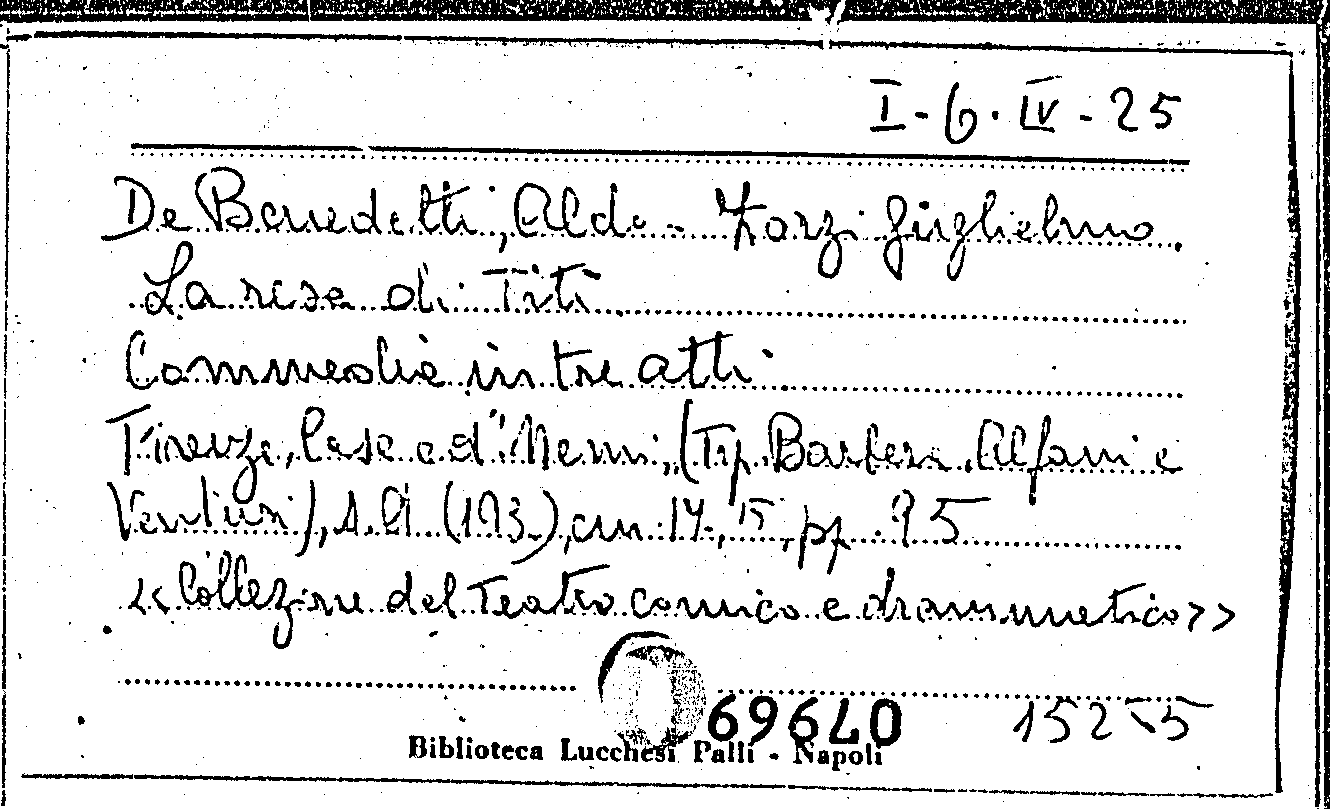 I - 6. IV - 25
De Benedetti, Aldo - Zorzi Guglielmo.
La resa di Titì
Commedia in tre atti
Firenze, Casa ed. Nemi, (Tip. Barbera, Alfani e
Venturi), s.a. (193.), cm. 17., 15, pp. 95
<<Collezione del Teatro comico e drammatico>>
69640
15255
Biblioteca Lucchesi Palli - Napoli